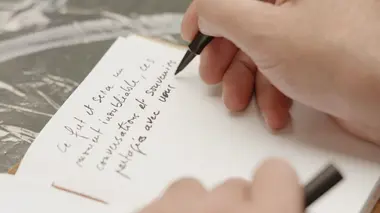 Ce fut et sera un
moment inoubliable, ces
conversations et souvenirs
partagés avec vous